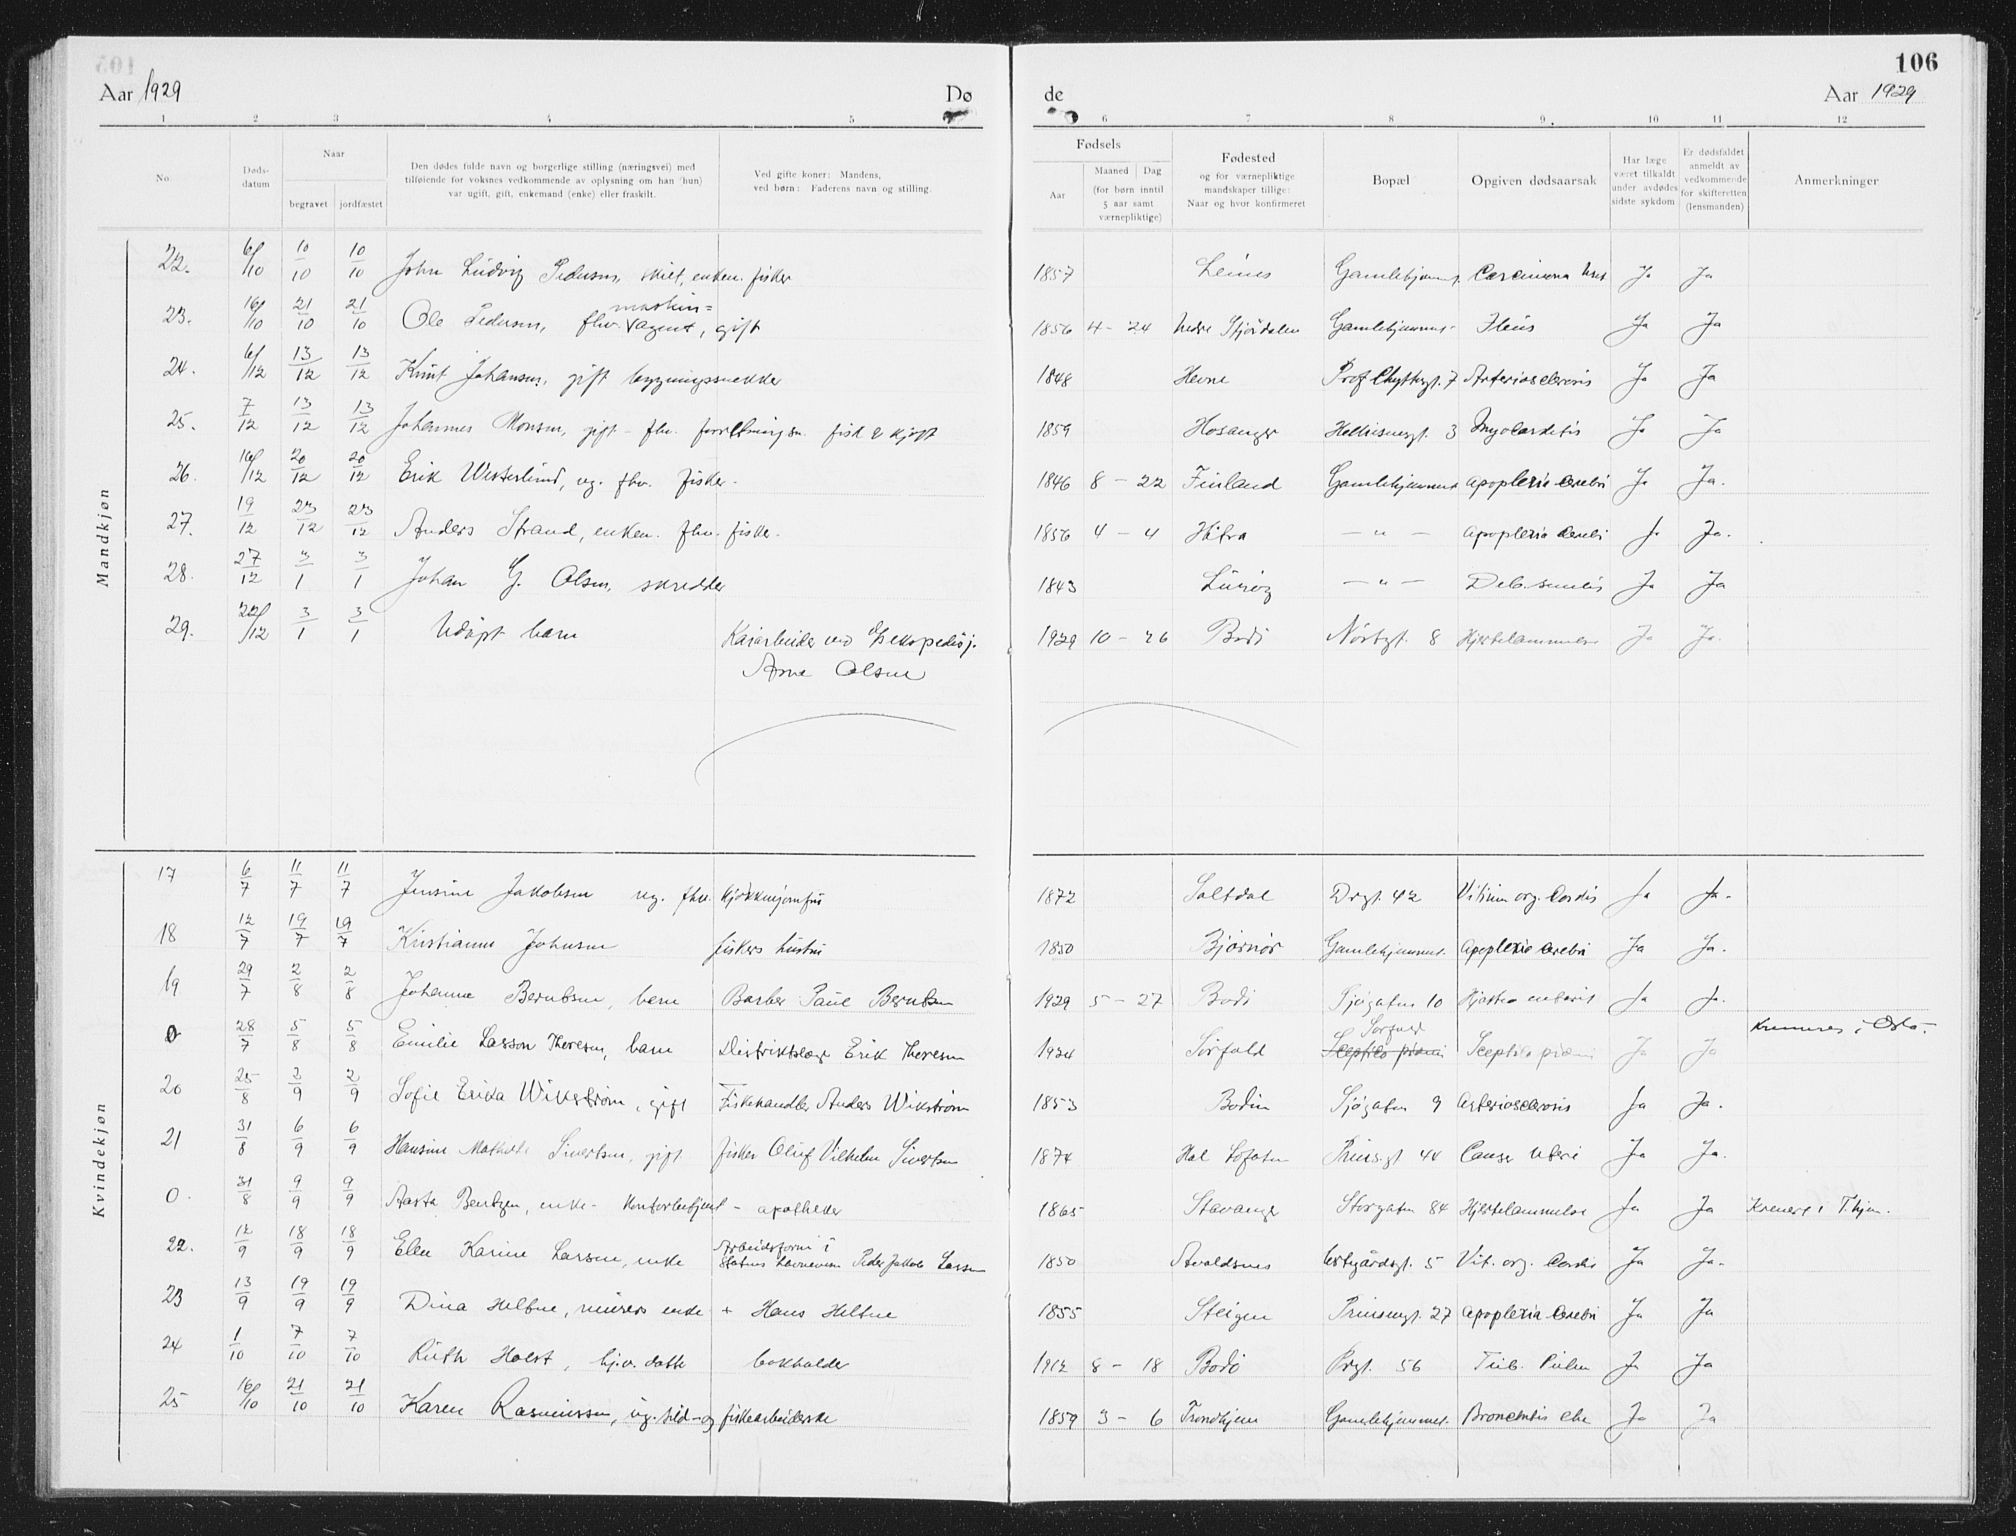 106
Aar 1929 Dø de Aar 1929
1 2 3 4 5 6 7 8 9. 10 11 12
No.
Døds-
datum
Naar
begravet jordfæstet
Den dødes fulde navn og borgerlige stilling (næringsvei) med
tilføiende for voksnes vedkommende av oplysning om han (hun)
var ugift, gift, enkemand (enke) eller fraskilt.
Ved gifte koner: Mandens,
ved børn: Faderens navn og stilling.
Fødsels
Aar
Maaned Dag
(for børn inntil
5 aar samt
værnepliktige)
Fødested
og for værnepliktige
mandskaper tillige:
Naar og hvor konfirmeret
Bopæl
Opgiven dødsaarsak
Har læge
været tilkaldt
under avdødes
sidste sykdom
Er dødsfaldet
anmeldt av
vedkommende
for skifteretten
(lensmanden)
Anmerkninger
Mandkjøn
22. 6/10 10/10 10/10 John Ludvig Pedersen, skilt, enkem. fisker 1857 Leines Gamlehjemmet Carcinoma Ja Ja
maskin=
23. 16/10 21/10 21/10 Ole Pedersen, fhv. agent, gift 1856 4 - 24 Nedre Stjørdalen Gamlehjemmet Ileus Ja Ja
24. 6/12 13/12 13/12 Knut Johansen, gift bygningssnekker 1848 Hevne Prof Chyttsgt. 7 Arteriosclerosis Ja Ja
25. 7/12 13/12 13/12 Johannes Monsen, gift - fhv. forretningsm. fisk & kjøtt 1859 Hosanger Hellisensgt. 3 Myocarditis Ja Ja
26. 16/12 20/12 20/12 Erik Westerlund, ug. fhv. fisker. 1846 8 - 22 Finland Gamlehjemmet apoplexia cerebri Ja Ja.
27. 19/12 23/12 23/12 Anders Strand, enkem. fhv. fisker. 1856 4 - 4 Hitra — " — apoplexia cerebri Ja Ja.
28. 27/12 3/1 3/1 Johan G. Olsen, skredder 1843 Lurøy — " — Deb. senilis Ja Ja
29. 22/12 3/1 3/1 Udøpt barn Kaiarbeider ved Ekspedisj. 1929 10 - 26 Bodø Nørbygt. 8 Hjertelammelse Ja Ja.
Arne Olsen
Kvindekjøn
17 6/7 11/7 11/7 Jensine Jakobsen ug. fhv. kjøkkenjomfru 1872 Saltdal Drgt. 42 Vitium org. Cordis Ja Ja.
18 12/7 19/7 19/7 Kristianne Johnsen fiskers hustru 1850 Bjørnør Gamlehjemmet. Apoplexia cerebri Ja Ja.
19 29/7 2/8 2/8 Johanne Berntsen, barn Barber Paul Berntsen 1929 5 - 27 Bodø Sjøgaten 10 Gastro enterit Ja Ja.
Sørfold
0 28/7 5/8 5/8 Emilie Larsson Thoresen, barn Distriktslæge Erik Thoresen 1924 Sørfold Sceptico piæmi Ja Ja Kremeres i Oslo.
20 25/8 2/9 2/9 Sofie Erika Wikstrøm, gift Fiskehandler Anders Wikstrøm 1853 Bodin Sjøgaten 9 Arteriosclerosis Ja Ja.
21 31/8 6/9 6/9 Hansine Mathilde Sivertsen, gift fisker Oluf Vilhelm Sivertsen 1874 Hol Lofoten Prinsgt 44 Cancer uteri Ja Ja.
0. 31/8 9/9 9/9 Aasta Bentzen, enke - kontorbetjent - apotheker 1865 Stavanger Storgaten 84 Hjertelammelse Ja Ja Kremert i T.hjem.
22. 12/9 18/9 18/9 Elen Karine Larsen, enke Arbeidsform. i
Statens Havnevesen Peder Jakob Larsen 1850 Avaldsnes 5 Vit. org. Cordis Ja Ja.
23 13/9 19/9 19/9 Dina Heltne, murers enke + Hans Heltne 1855 Steigen Prinsensgt. 27 apoplexia Cerebri Ja Ja
24 1/10 7/10 7/10 Ruth Holst, hj.v. datte bokholder 1912 8 - 18 Bodø Drgt. 56 Tub. Pulm Ja Ja
25 16/10 21/10 21/10 Karen Rasmussen, ug. sild- og fiskearbeiderske 1859 3 - 6 Trondhjem Gamlehjemmet. Bronchitis chr Ja Ja